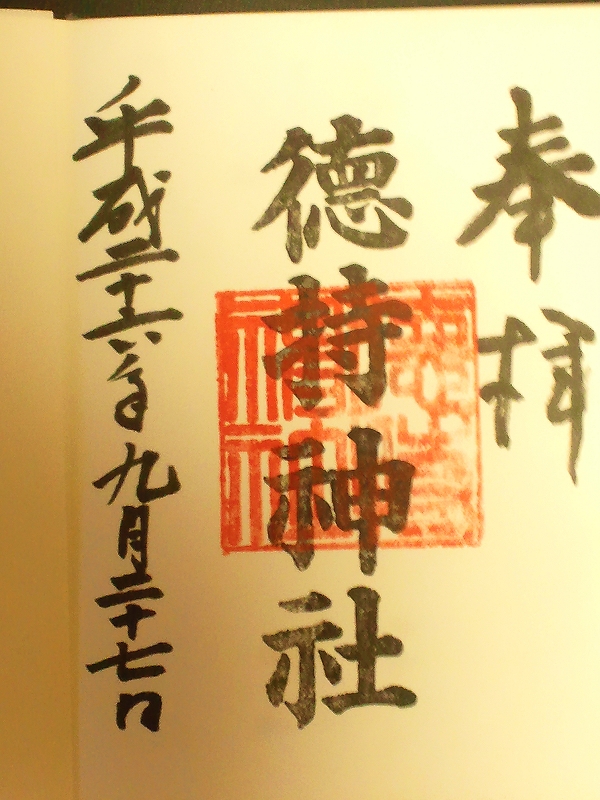 奉拝
徳持神社
平成二十六年九月二十七日